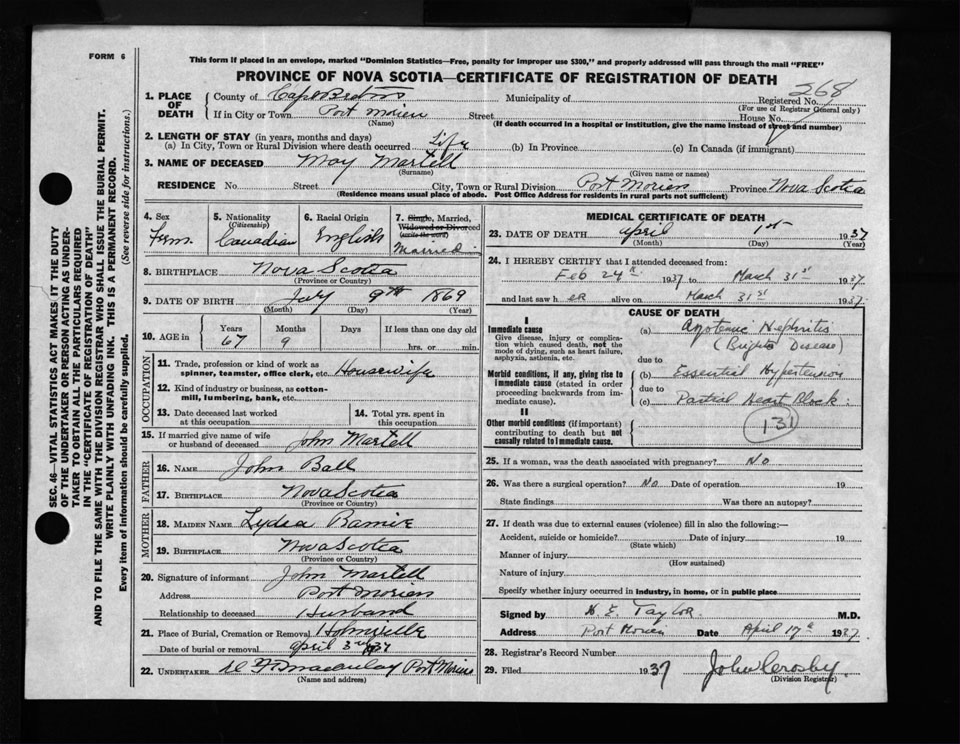 FORM 6
This form if placed in an envelope, marked "Dominion Statistics—Free, penalty for improper use $300," and properly addressed will pass through the mail "FREE"
PROVINCE OF NOVA SCOTIA—CERTIFICATE OF REGISTRATION OF DEATH
268
1. PLACE OF DEATH
County of Cape Breton Municipality of Registered No.
(For use of Registrar General only)
If in City or Town Port Morien Street House No.
(Name) (If death occurred in a hospital or institution, give the name instead of street and number)
2. LENGTH OF STAY (in years, months and days)
(a) In City, Town or Rural Division where death occurred Life (b) In Province (c) In Canada (if immigrant)
3. NAME OF DECEASED May Martell
(Surname) (Given name or names)
RESIDENCE No. Street City, Town or Rural Division Port Morien Province Nova Scotia
(Residence means usual place of abode. Post Office Address for residents in rural parts not sufficient)
4. Sex
Fem.
5. Nationality
(Citizenship)
Canadian
6. Racial Origin
English
7. Single, Married,
Widowed or Divorced
(write the word)
Married
8. BIRTHPLACE Nova Scotia
(Province or Country)
9. DATE OF BIRTH July 9th 1869
(Month) (Day) (Year)
10. AGE in
Years Months Days If less than one day old
67 9 hrs. or min.
OCCUPATION
11. Trade, profession or kind of work as
spinner, teamster, office clerk, etc. Housewife
12. Kind of industry or business, as cotton-
mill, lumbering, bank, etc.
13. Date deceased last worked
at this occupation
14. Total yrs. spent in
this occupation
15. If married give name of wife
or husband of deceased John Martell
FATHER
16. NAME John Ball
17. BIRTHPLACE Nova Scotia
(Province or Country)
MOTHER
18. MAIDEN NAME Lydia
19. BIRTHPLACE Nova Scotia
(Province or Country)
20. Signature of informant John Martell
Address Port Morien
Relationship to deceased Husband
21. Place of Burial, Cremation or Removal Homeville
Date of burial or removal April 3rd 1937
22. UNDERTAKER Port Morien
(Name and address)
MEDICAL CERTIFICATE OF DEATH
23. DATE OF DEATH April 1st 1937
(Month) (Day) (Year)
24. I HEREBY CERTIFY that I attended deceased from:
Feb 24th 1937 to March 31st 1937
and last saw her alive on March 31st 1937.
CAUSE OF DEATH
I
Immediate cause
Give disease, injury or complica-
tion which caused death, not the
mode of dying, such as heart failure,
asphyxia, asthenia, etc.
(a) Azotemic Nephritis
(Brights Disease)
due to
Morbid conditions, if any, giving rise to
immediate cause (stated in order
proceeding backwards from im-
mediate cause).
(b) Essential Hypertension
due to
(c) Partial Heart Block.
II
Other morbid conditions (if important)
contributing to death but not
causally related to immediate cause.
131
25. If a woman, was the death associated with pregnancy? No
26. Was there a surgical operation? No Date of operation 19
State findings Was there an autopsy?
27. If death was due to external causes (violence) fill in also the following:—
Accident, suicide or homicide? Date of injury 19
(State which)
Manner of injury
(How sustained)
Nature of injury
Specify whether injury occurred in industry, in home, or in public place
Signed by H. E. Taylor M.D.
Address Port Morien Date April 17th 1937.
28. Registrar's Record Number
29. Filed 1937 John Crosby
(Division Registrar)
SEC. 46—VITAL STATISTICS ACT MAKES IT THE DUTY
OF THE UNDERTAKER OR PERSON ACTING AS UNDER-
TAKER TO OBTAIN ALL THE PARTICULARS REQUIRED
IN THE "CERTIFICATE OF REGISTRATION OF DEATH"
AND TO FILE THE SAME WITH THE DIVISION REGISTRAR WHO SHALL ISSUE THE BURIAL PERMIT.
WRITE PLAINLY WITH UNFADING INK. THIS IS A PERMANENT RECORD.
Every item of information should be carefully supplied. (See reverse side for instructions.)